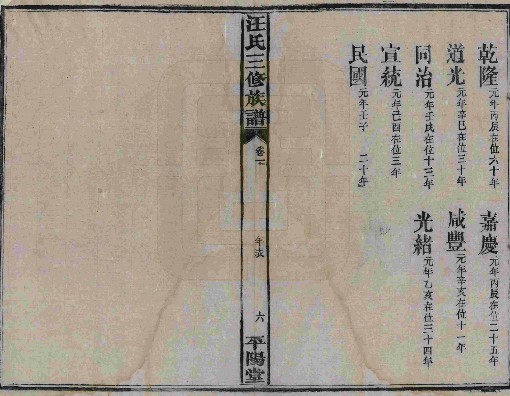 乾隆元年丙辰在位六十年
嘉慶元年丙辰在位二十五年
道光元年辛巳在位三十年
咸豐元年辛亥在位十一年
同治元年壬戌在位十三年
光緒元年乙亥在位三十四年
宣統元年己酉在位三年
民國元年壬子 二十年
汪氏三修族譜
卷一
年表
六
平陽堂